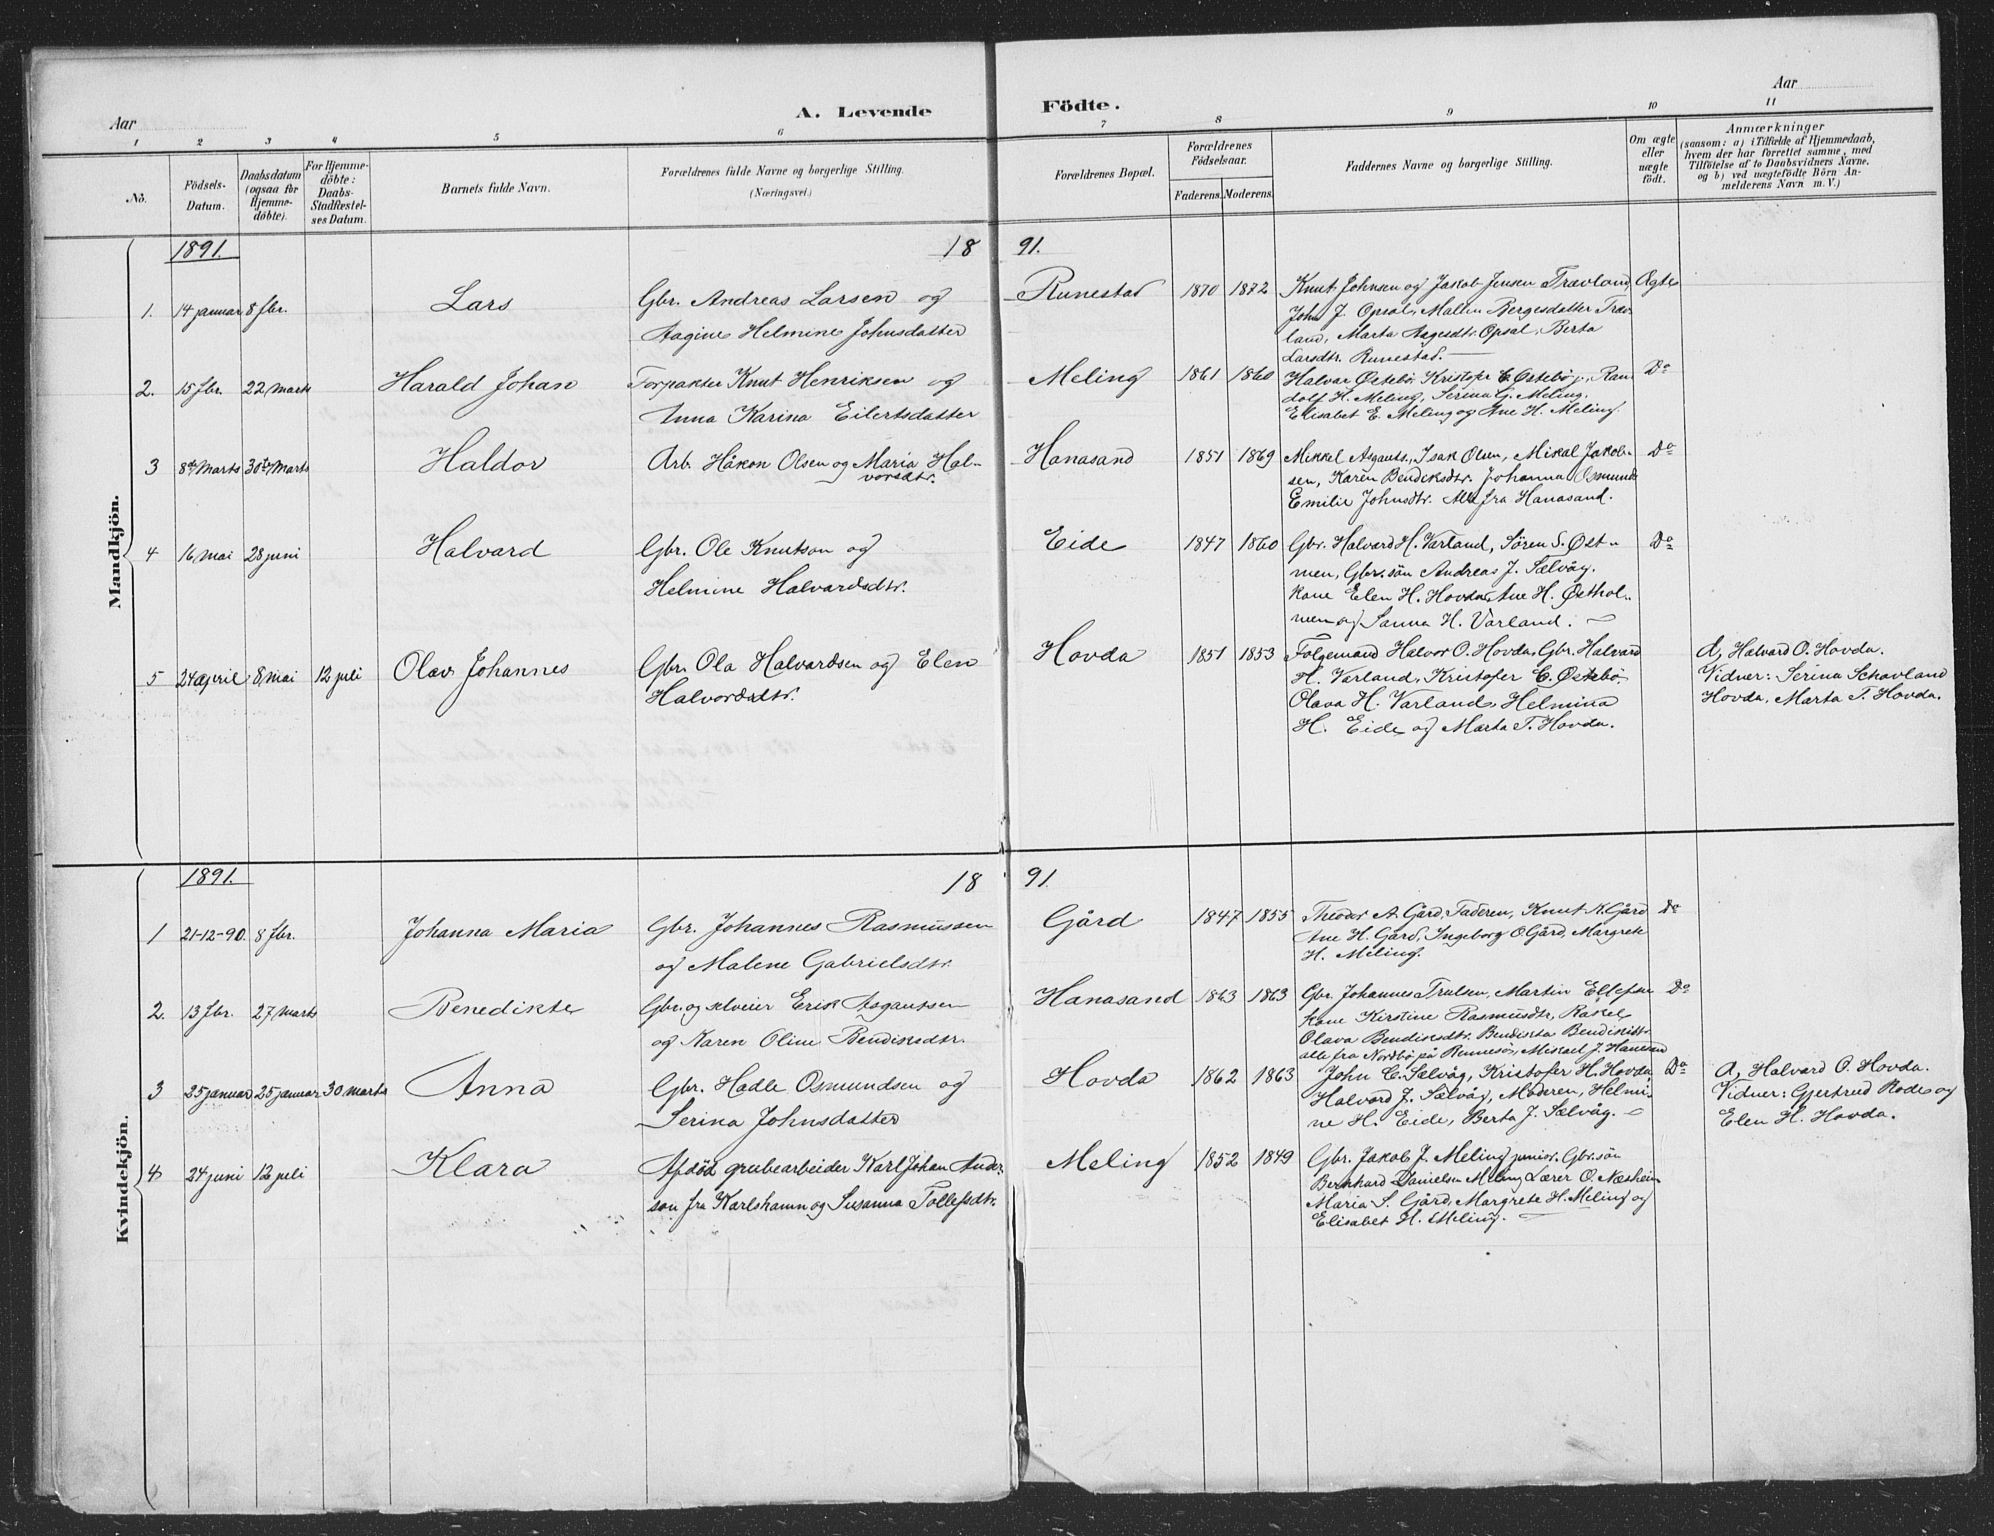 Aar
A. Levende Födte.
Aar
1 2 3 4 5 6 7 8 9 10 11
No.
Födsels-Datum.
Daabsdatum (ogsaa for Hjemme-döbte).
For Hjemme-döbte: Daabs-Stadfæstel-ses Datum.
Barnets fulde Navn.
Forældrenes fulde Navne og borgerlige Stilling.
(Næringsvei.)
Forældrenes Bopæl.
Forældrenes Födselsaar.
Faderens. Moderens.
Faddernes Navne og borgerlige Stilling.
Om ægte eller uægte födt.
Anmærkninger
(saasom: a) i Tilfælde af Hjemmedaab,
hvem der har forrettet samme, med
Tilföielse af to Daabsvidners Navne,
og b) ved uægtefödte Börn An-
melderens Navn m. V.)
Mandkjön.
1891. 18 91.
1. 14 januar 8 fbr. Lars Gbr. Andreas Larsen og Runestad 1870 1872 Knut Johnsen og Jakob Jensen Travland, Ægte
Aagine Helmine Johnsdatter John J. Opsal, Malin Bergesdatter Trav-
land, Marta Aagesdtr. Opsal, Berta
Larsdtr. Runestad.
2. 15 fbr. 22 marts Harald Johan Forpakter Knut Henriksen og Meling 1861 1860 Halvar Østebö, Kristofer E. Østebö, Ran- Do
Anna Karina Eilertsdatter dolf H. Meling, Serina G. Meling,
Elisabet E. Meling og Ane H. Meling.
3 8de Marts 30te Marts Haldor Arb. Håkon Olsen og Maria Hal- Hanasand 1851 1869 Mikkel Asgauts., Isak Olsen, Mikal Jakob- Do
vorsdtr. sen, Karen Bendiksdtr. Johanna Osmunds
Emilie Johnsdtr. Alle fra Hanasand.
4 16 mai 28 juni Halvard Gbr. Ole Knutson og Eide 1847 1860 Gbr. Halvard H. Varland, Sören S. Øst- Do
Helmine Halvardsdtr. men, Gbr. sön Andreas J. Sælvåg.
Kone Elen H. Hovda, Ane H. Østhol-
men og Sanna H. Varland.
5 24 april 8 mai 12 juli Olav Johannes Gbr. Ola Halvardsen og Elen Hovda 1851 1853 Folgemand Halvor O. Hovda, Gbr. Halvard A, Halvard O. Hovda.
Halvordsdtr. H. Varland, Kristofer E. Østebö, Vidner: Serina Schavland
Olava H. Varland, Helmina Hovda, Marta T. Hovda.
H. Eide og Marta T. Hovda.
Kvindekjön.
1891. 18 91.
1 21-12-90. 8 fbr. Johanna Maria Gbr. Johannes Rasmussen Gård 1847 1855 Theodor A. Gård, Faderen, Knut K. Gård Do
og Malene Gabrielsdtr. Ane H. Gård, Ingeborg O. Gård, Margrete
H. Meling.
2. 13 fbr. 27 marts Benedikte Gbr. og selveier Erik Asgautsen Hanasand 1863 1863 Gbr. Johannes Trulsen, Martin Ellefsen Do
og Karen Oline Bendiksdtr. Kone Kirstine Rasmusdtr, Rakel
Olava Bendiksdtr. Bendikta Bendiksdtr.
alle fra Nordbö på Rennesö, Mikael J. Hanasand
3 25 januar 25 januar 30 marts Anna Gbr. Hadle Osmundsen og Hovda 1862 1863 John C. Sælvåg, Kristofer H. Hovda Do A, Halvard O. Hovda.
Serina Johnsdatter Halvard J. Sælvåg, Moderen, Helmi- Vidner: Gjertrud Rode og
ne H. Eide, Berta J. Sælvåg. Elen H. Hovda.
4 24 juni 12 juli Klara Afdöd grubearbeider Karl Johan Ander- Meling 1852 1849 Gbr. Jakob J. Meling junior. Gbr. sön
son fra Karlshamn og Susanna Tollefsdtr. Bernhard Danielsen Meling, Lærer O. Næsheim
Maria S. Gård, Margrete H. Meling og
Elisabet H. Meling.